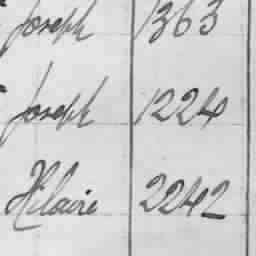 Joseph 1363
Joseph 1224
Hilaire 2242